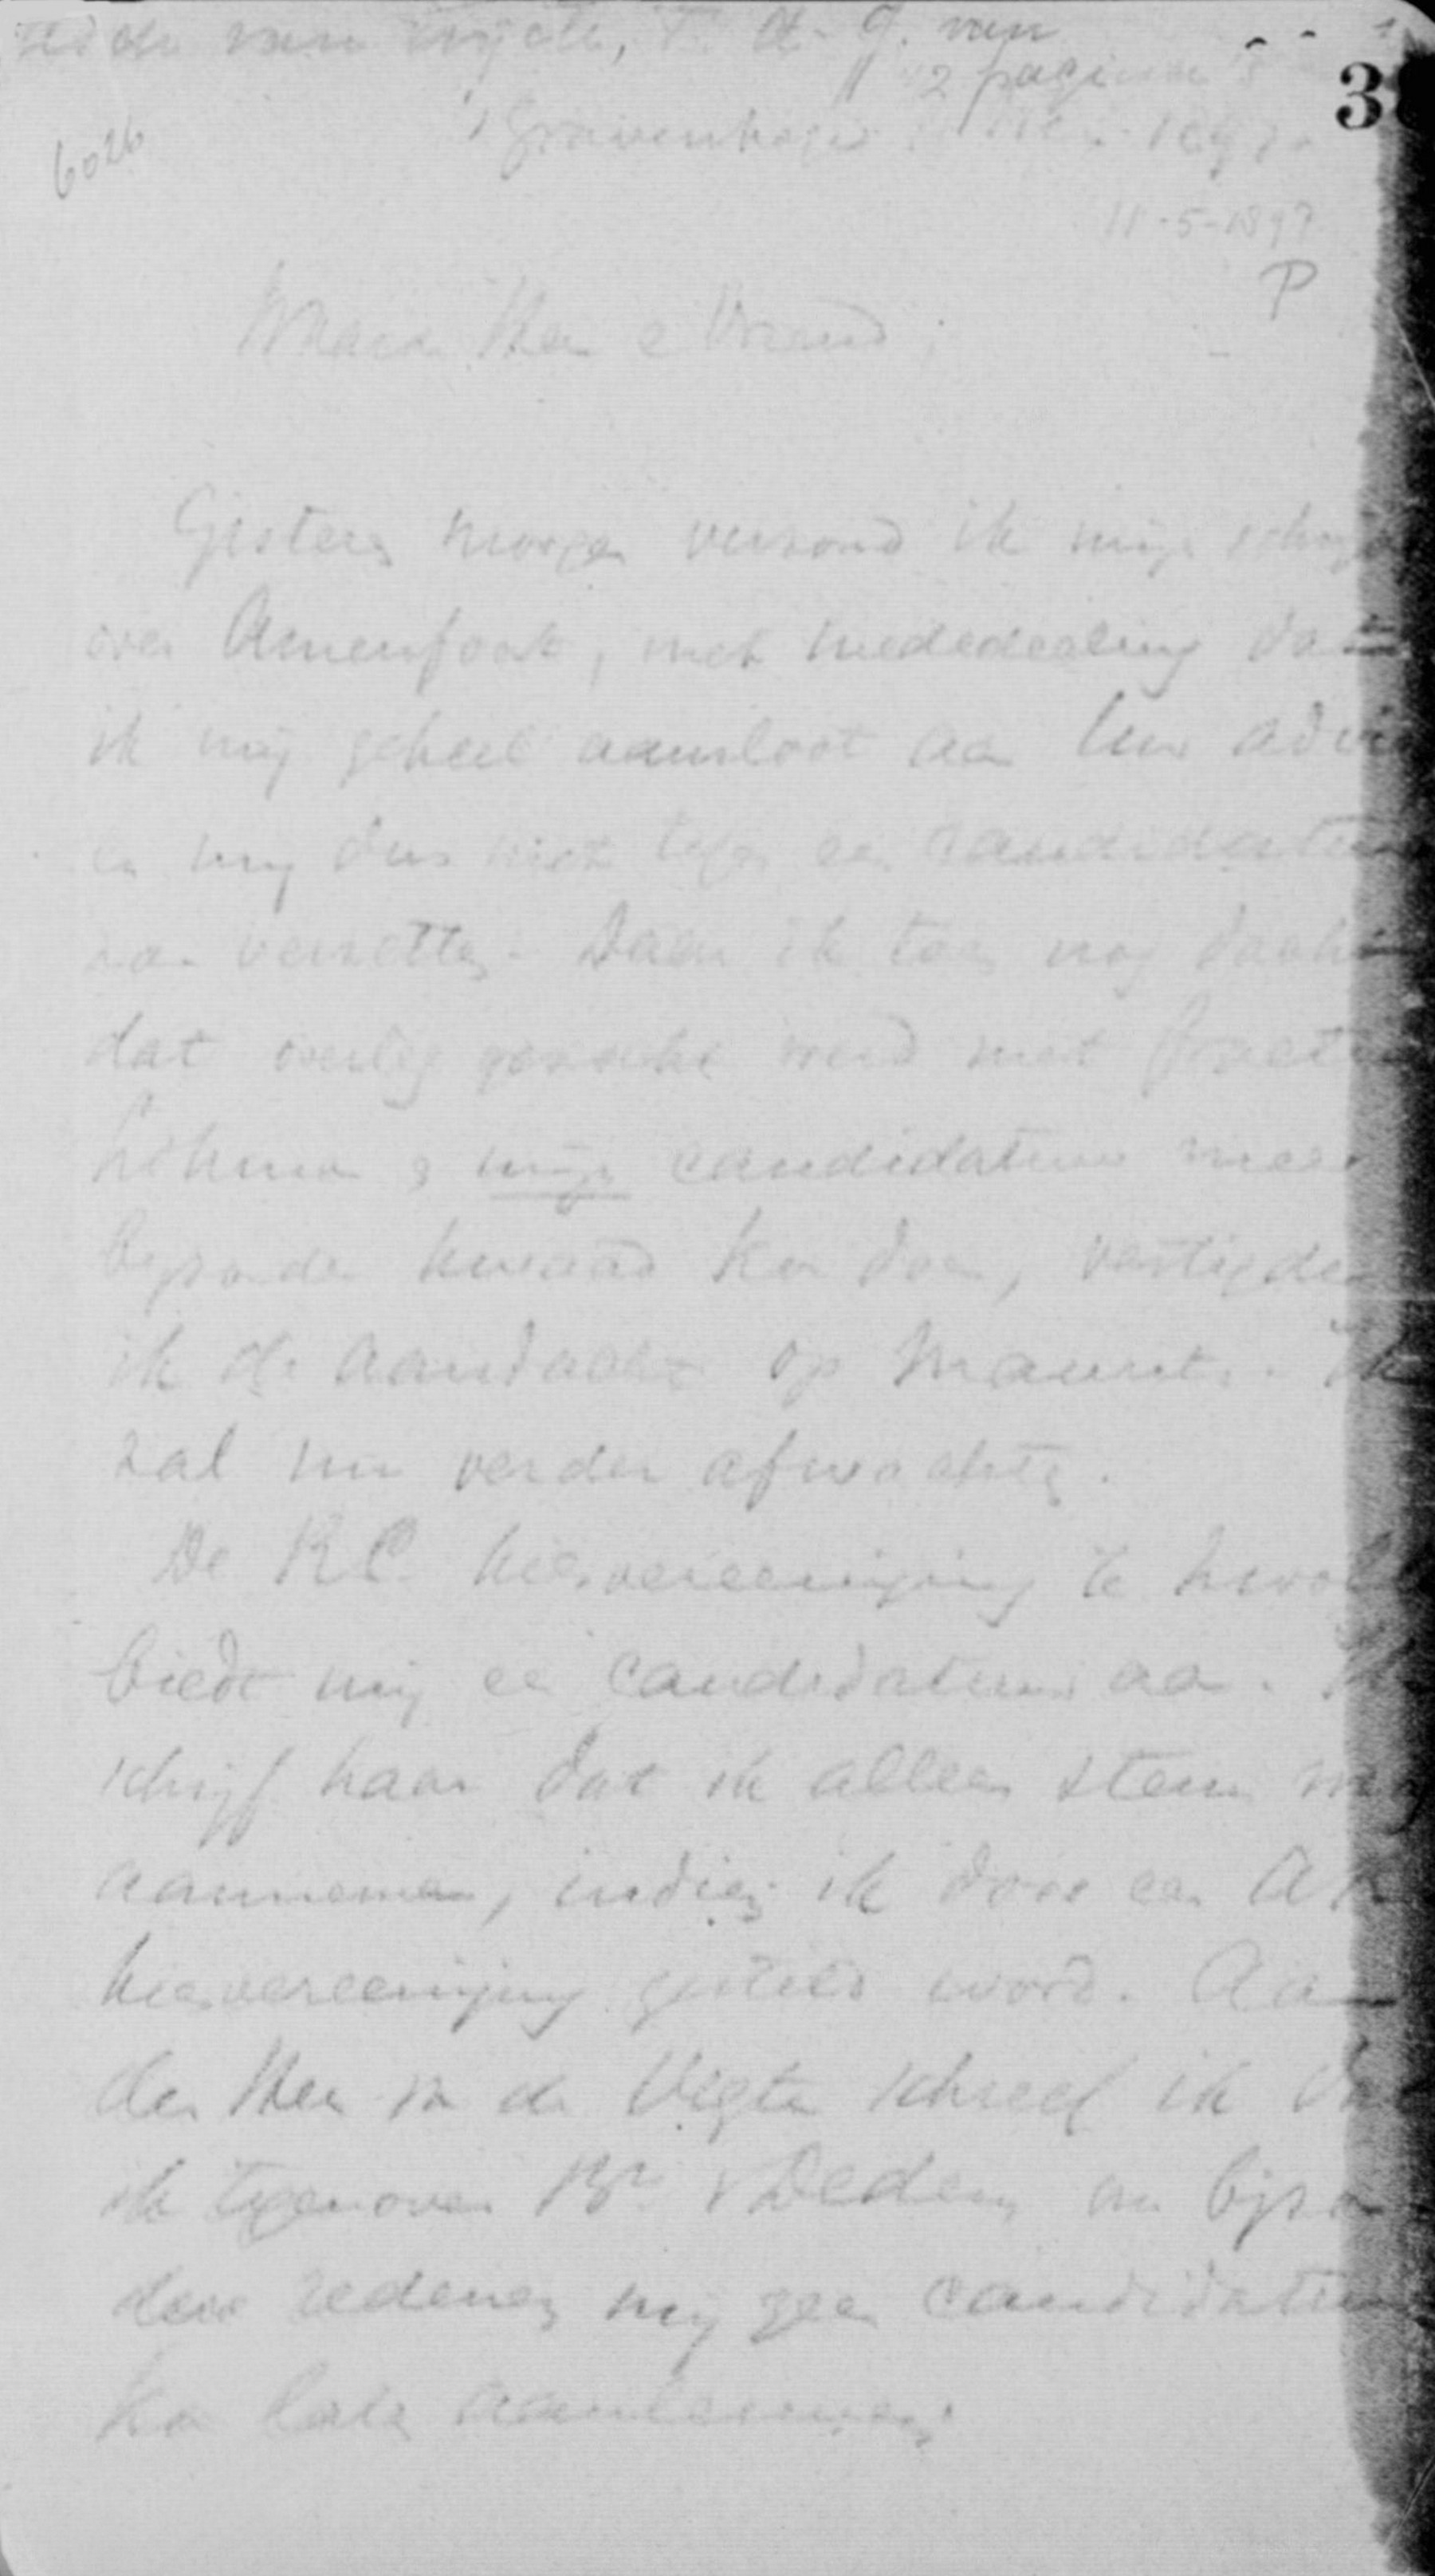 van
2 pagina's
3
6026
's Gravenhage
11-5-1897
P
Waarde Heer & Vriend;
Gisteren morgen verzond ik mijn schrijv
over Amersfoort, met mededeeling dat
ik mij geheel aansloot aan Uw advie
en mij dus niet tegen een candidatuur
zou verzetten. Daar ik toen nog dacht
dat overleg gezocht werd met
Lohman & mijn candidatuur meer
byzonder kwaad kon doen, vestigde
ik de aandacht op Mauritz. Ik
zal nu verder afwachten.
De RC kiesvereeniging te Zwolle
biedt mij een candidatuur aan. Ik
schrijf haar dat ik alleen steun mag
aannemen, indien ik door een AR
kiesvereeniging gesteld word. Aan
den Heer v d Vegte schreef ik dat
ik tegenover Bn v Dedem om byzon
dere redenen mij geen candidatuur
kon laten aanleunen.